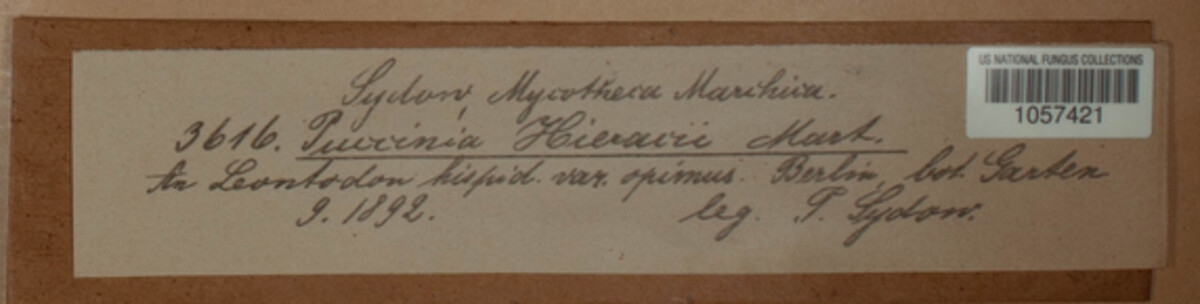 US NATIONAL FUNGUS COLLECTIONS
1057421
Sydow, Mycotheca Marchica.
3616. Puccinia Hieracii Mart.
An Leontodon hispid. var. opimus. Berlin, bot. Garten
9. 1892. leg. P. Sydow.